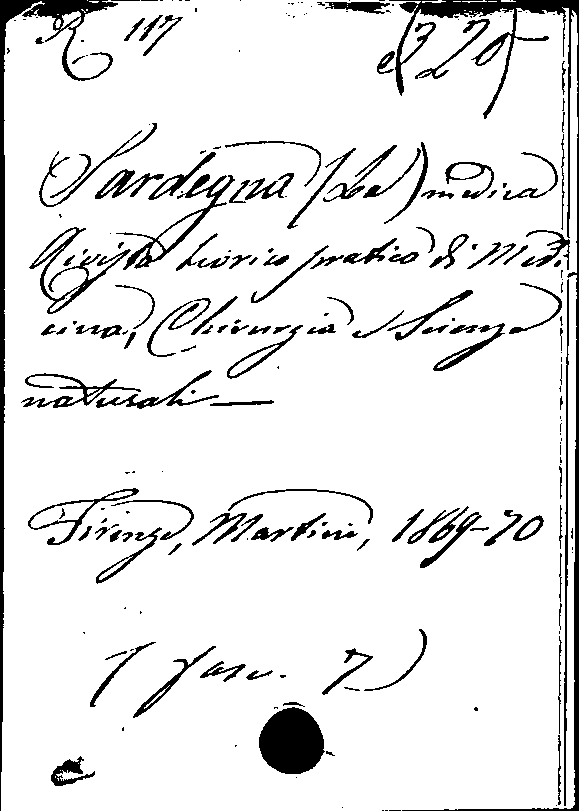 R. 117
Sardegna (La) medica
Rivista teorico pratico di Medi-
cina, Chirurgia e Scienze
naturali —
Firenze, Martini, 1869-70
( fasc. 7)